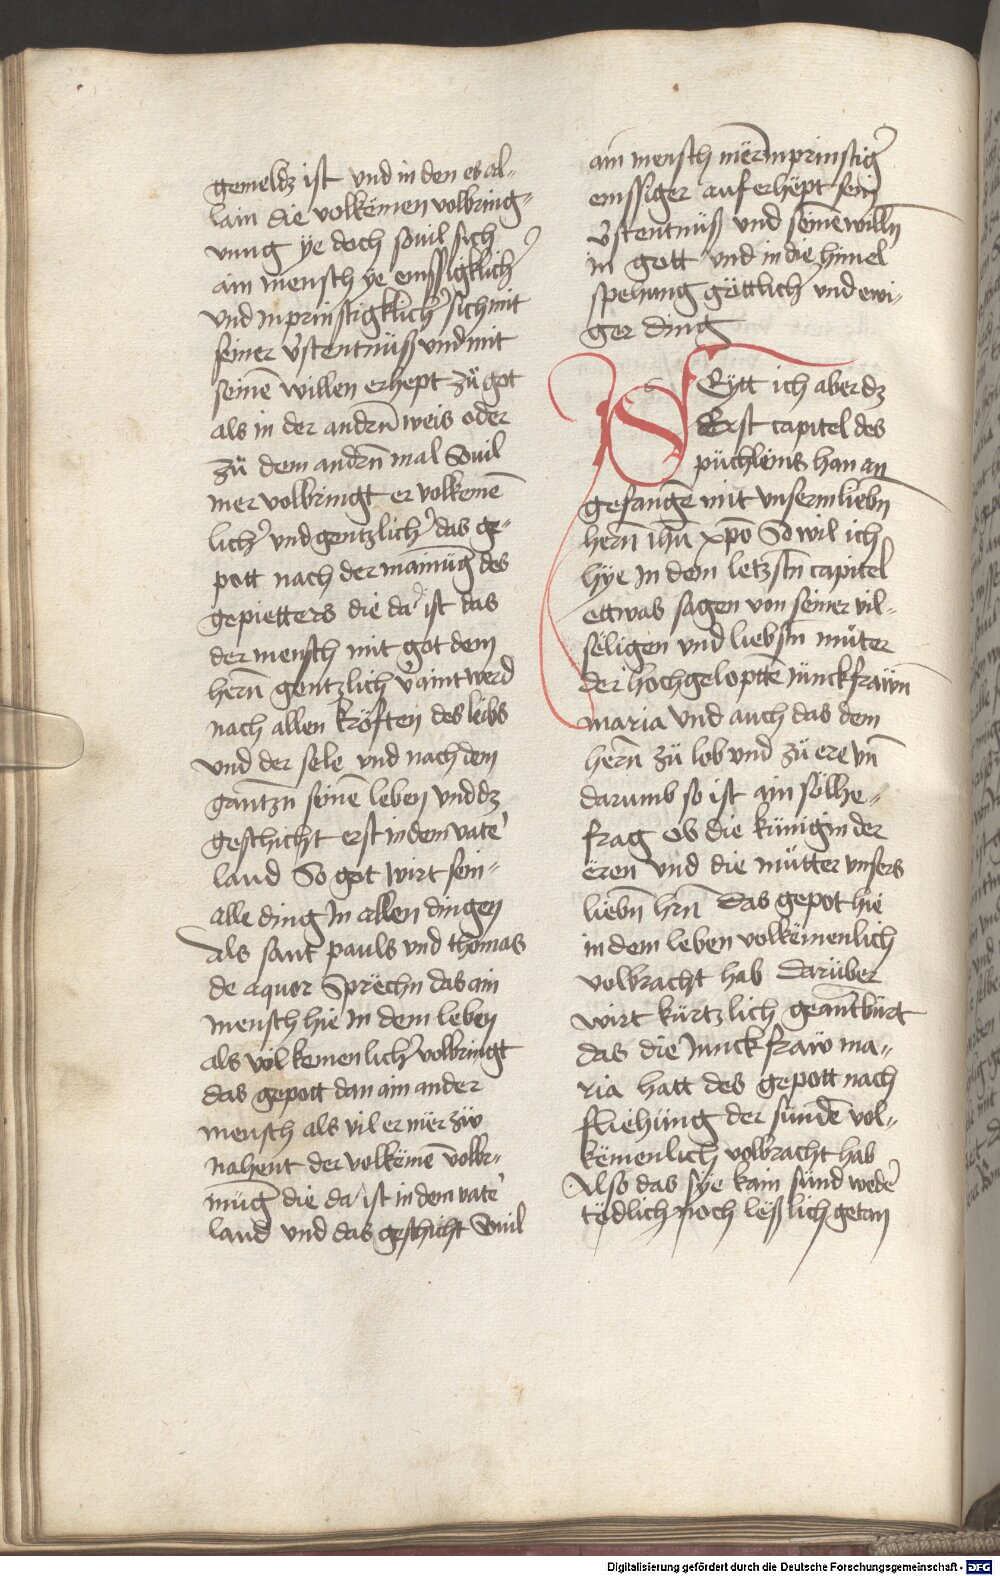 gemeldz ist vnd in den es al-
lain die volkëmen volbring-
vnng ÿe doch souil sich
ain mensch ÿe emssigklich̾
vnd inprinstigklich̾ sich mit
seiner v̾stentnüß vnd mit
seinē willen erhept zü got
als in der andrn̄ weis oder
zü dem andrn̄ mal Souil
mer volbringt er volkemē
lich̾ vnd gentzlich̾ das ge-
pott nach der mainūg des
gepietters die da ist das
der mensch mit got dem
hern̄ gentzlich v̾aint werd
nach allen kröften des leibs
vnd der sele vnd nach dem
gantzn̄ seinē leben vnd dz
geschicht erst in dem vate̾
land So got wirt sein
alle ding In allen dingen
Als sant pauls vnd thomas
de aquor Sprëchn das ain
mensch hie In dem leben
als volkemenlich̾ volbringt
das gepott dan ain ander
mensch als vil er mër zü
nahent der volkëmē volbr-
mūg die da ist in dem vate̾
land vnd das geschicht Souil
ain mensch mër inprinstig̾
emssiger auf erhëpt sein
v̾stentnüß vnd seinē willn̄
in gott vnd in die himel
spehung göttlich̾ vnd ewi-
ger ding
SEytt ich aber dz
Erst capitel des
püchleins han an
gefangē mit vnserm liebn̄
hern̄ ihū xp̄o So wil ich
hÿe In dem letzstn̄ capitel
ettwas sagen von seiner vil-
söligen vnd liebstn̄ müter
der hochgelopttē iunckfraẅn
maria Vnd auch das dem
hern̄ zü lob vnd zü ere vn̄
darumb so ist ain sölhe
frag Ob die künigin der
ëren vnd die mütter vnsers
liebn̄ hrn̄ das gepot hie
in dem leben volkëmenlich
volbracht hab Darüber
wirt kürtzlich geantbürt
das die Iunckfraw ma-
ria hatt des gepott nach
fliehüng der sundē vol-
këmenlich volbracht hab
Also das sÿe kain sünd wede̾
tödlich noch leßlich getan
Digitalisierung gefördert durch die Deutsche Forschungsgemeinschaft - DFG